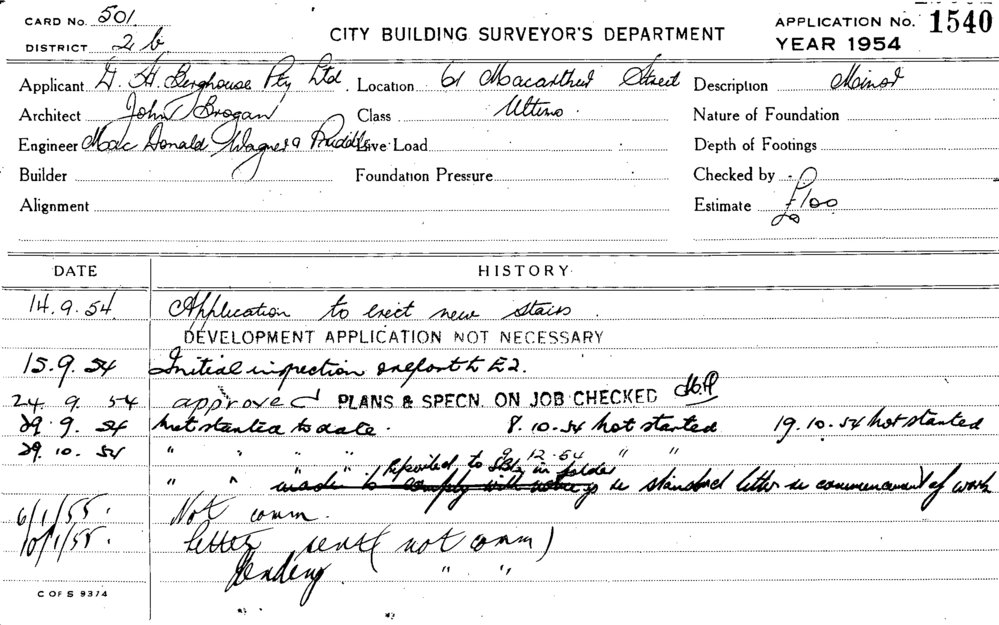 CARD No. 501.
DISTRICT 2 b
CITY BUILDING SURVEYOR'S DEPARTMENT
APPLICATION No. 1540
YEAR 1954
Applicant Berghouse Pty Ltd. Location 61 Macarthur Street Description Minor
Architect John Brogan Class Ultimo Nature of Foundation
Engineer MacDonald Wagner & Priddle Live Load Depth of Footings
Builder Foundation Pressure Checked by
Alignment Estimate £100
DATE HISTORY
14.9.54 Application to erect new stairs.
DEVELOPMENT APPLICATION NOT NECESSARY
15.9.54 Initial inspection & report to E2.
24.9.54 approved PLANS & SPECN. ON JOB CHECKED
29.9.54 Not started to date. 8.10.54 not started 19.10.54 not started
29.10.54 " " " " 9.12.54 " "
" " Reported to in folder re standard letter re commencement of work
6/1/55. Not comm.
10/1/55. letter sent (not comm)
Pending. " "
C OF S 93/4